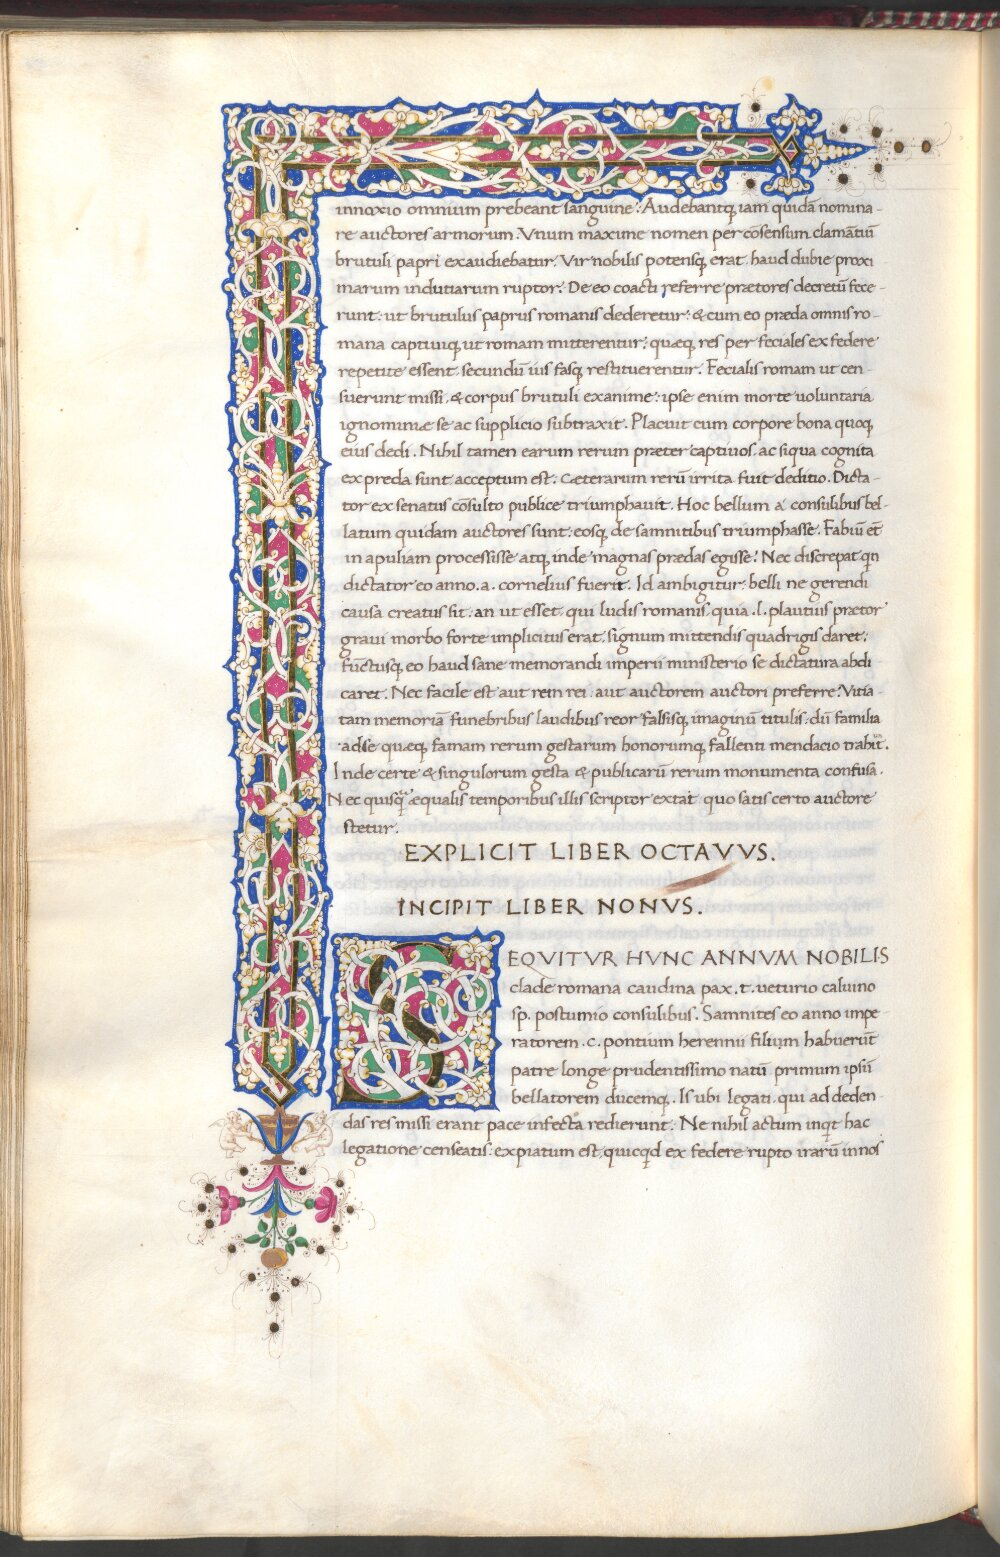 innoxio omnium prebeant sanguine. Audebantq; iam quidā nomina-
re auctores armorum. Vnum maxime nomen per cōsensum clamātiū
brutuli papri exaudiebatur. Vir nobilis potensq; erat haud dubie proxi
marum indutiarum ruptor. De eo coacti referre prætores decretū fece-
runt: ut brutulus paprius romanis dederetur: & cum eo præda omnis ro-
mana captiuiq; ut romam mitterentur: quæq; res per feciales ex federe
repetite essent secundū ius fasq; restituerentur. Fecialis romam ut cen-
suerunt missi. & corpus brutuli exanime: ipse enim morte uoluntaria
ignominiæ se ac supplicio subtraxit. Placuit cum corpore bona quoq;
eius dedi. Nihil tamen earum rerum præter captiuos. ac siqua cognita
ex preda sunt acceptum est. Cæterarum rerū irrita fuit deditio. Dicta-
tor ex senatus cōsulto publice triumphauit. Hoc bellum a consulibus bel-
latum quidam auctores sunt: eosq; de samnitibus triumphasse. Fabiū et
in apuliam processisse atq; inde magnas prædas egisse. Nec discrepat qn
dictator eo anno .a. cornelius fuerit. Id ambigitur: belli ne gerendi
causa creatus sit. an ut esset qui ludis romanis. quia .l. plautius prætor
graui morbo forte implicitus erat. signum mittendis quadrigis daret:
fūctusq; eo haud sane memorandi imperii ministerio se dictatura abdi
caret. Nec facile est aut rem rei. aut auctorem auctori preferre. Vitia-
tam memoriā funebribus laudibus reor falsisq; imaginū titulis. dū familia
adse quæq; famam rerum gestarum honorumq; fallenti mendacio trahūt.
Inde certe & singulorum gesta & publicarū rerum monumenta confusa.
Nec quisq̄ æqualis temporibus illis scriptor extat quo satis certo auctore
stetur.
EXPLICIT LIBER OCTAVVS.
INCIPIT LIBER NONVS.
SEQVITVR HVNC ANNVM NOBILIS
clade romana caudina pax. t. ueturio caluino
sp. postumio consulibus. Samnites eo anno impe
ratorem .c. pontium herennii filium habuerūt
patre longe prudentissimo natū primum ipsū
bellatorem ducemq;. Is ubi legati qui ad deden-
das res missi erant pace infecta redierunt: Ne nihil actum inqt hac
legatione censeatis: expiatum est quicqd ex federe rupto irarū in nos